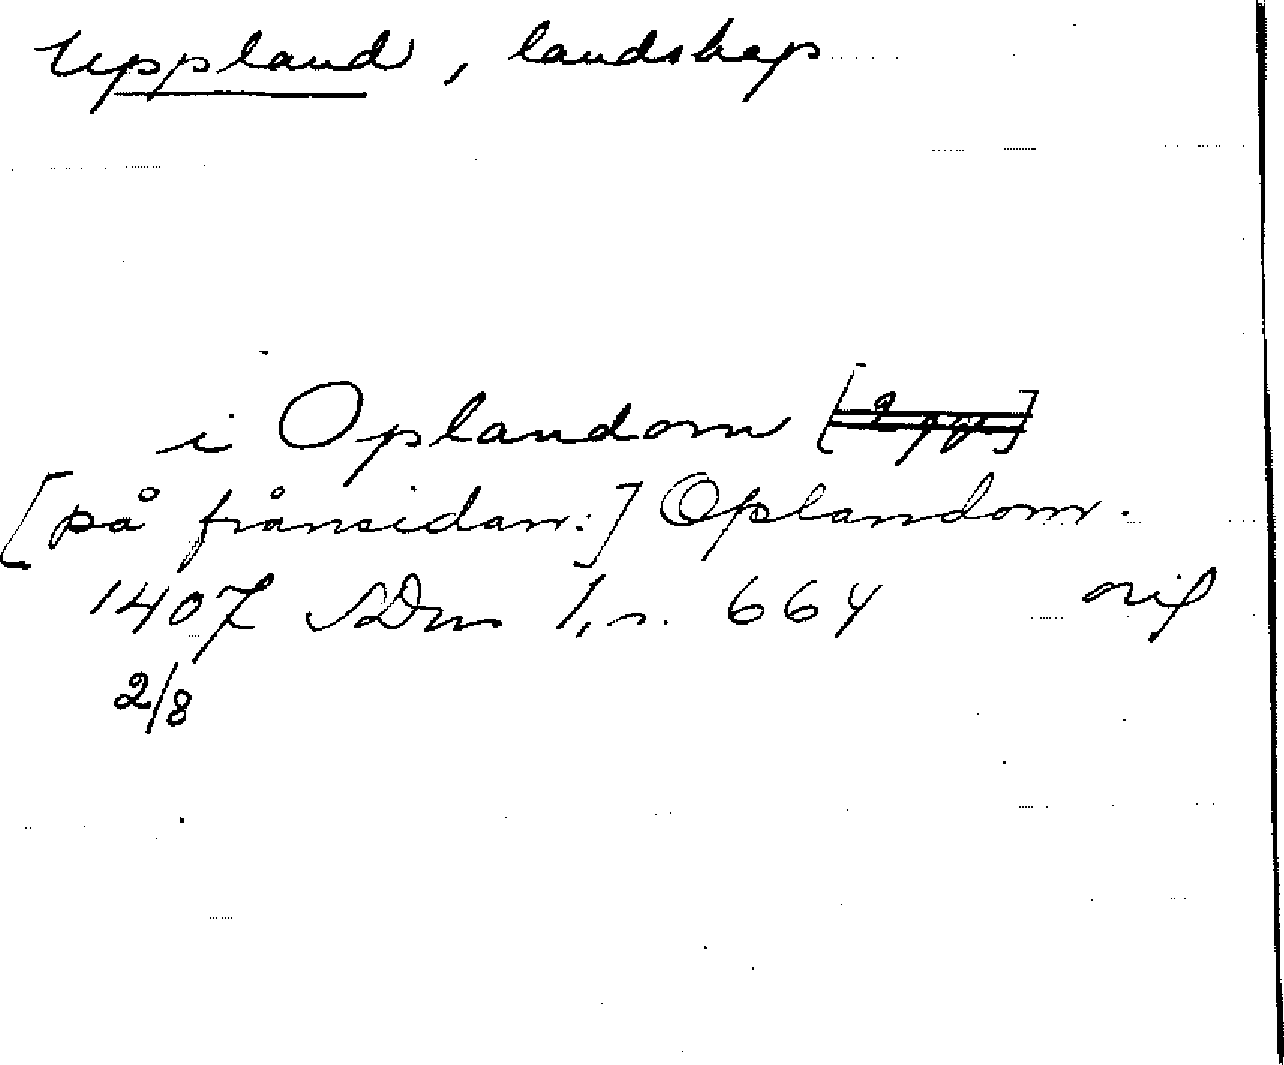 Uppland, landskap
i Oplandom [2 gg]
[på frånsidan:] Oplandom.
1407 SDns 1, s. 664 orig
2/8